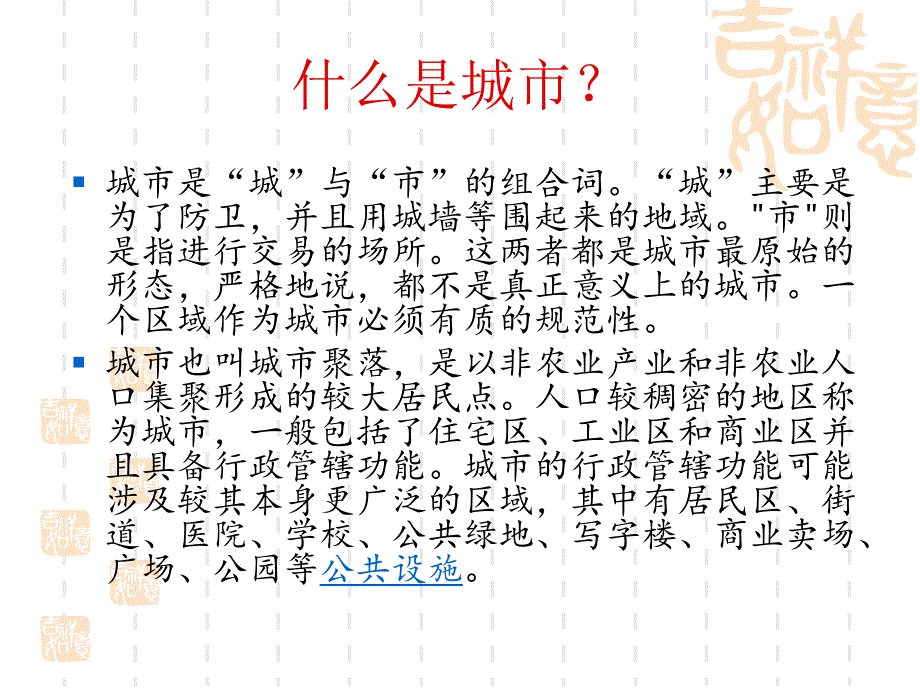 什么是城市?
城市是“城”与“市”的组合词。“城”主要是
为了防卫，并且用城墙等围起来的地域。"市"则
是指进行交易的场所。这两者都是城市最原始的
形态，严格地说，都不是真正意义上的城市。一
个区域作为城市必须有质的规范性。
城市也叫城市聚落，是以非农业产业和非农业人
口集聚形成的较大居民点。人口较稠密的地区称
为城市，一般包括了住宅区、工业区和商业区并
且具备行政管辖功能。城市的行政管辖功能可能
涉及较其本身更广泛的区域，其中有居民区、街
道、医院、学校、公共绿地、写字楼、商业卖场、
广场、公园等公共设施。
吉祥如意
吉祥如意
吉祥如意
吉祥如意